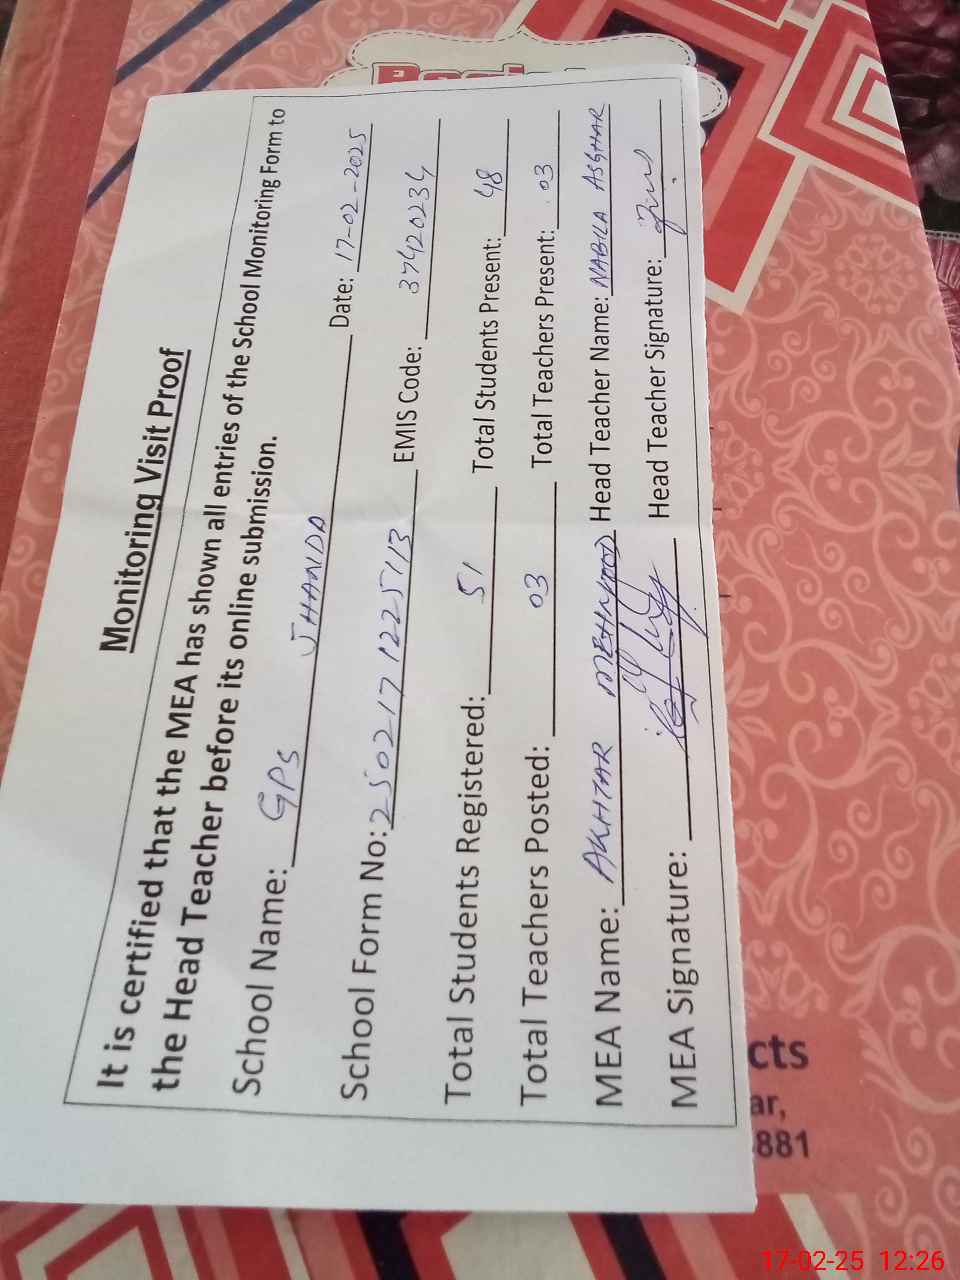 Monitoring Visit Proof
It is certified that the MEA has shown all entries of the School Monitoring Form to
the Head Teacher before its online submission.
School Name: GPS JHANDA Date: 17-02-2025
School Form No: 2502171225113 EMIS Code: 37420234
Total Students Registered: 51 Total Students Present: 48
Total Teachers Posted: 03 Total Teachers Present: 03
MEA Name: AKHTAR MEHMOOD Head Teacher Name: NABILA ASGHAR
MEA Signature: Head Teacher Signature:
cts
ar,
881
17-02-25 12:26